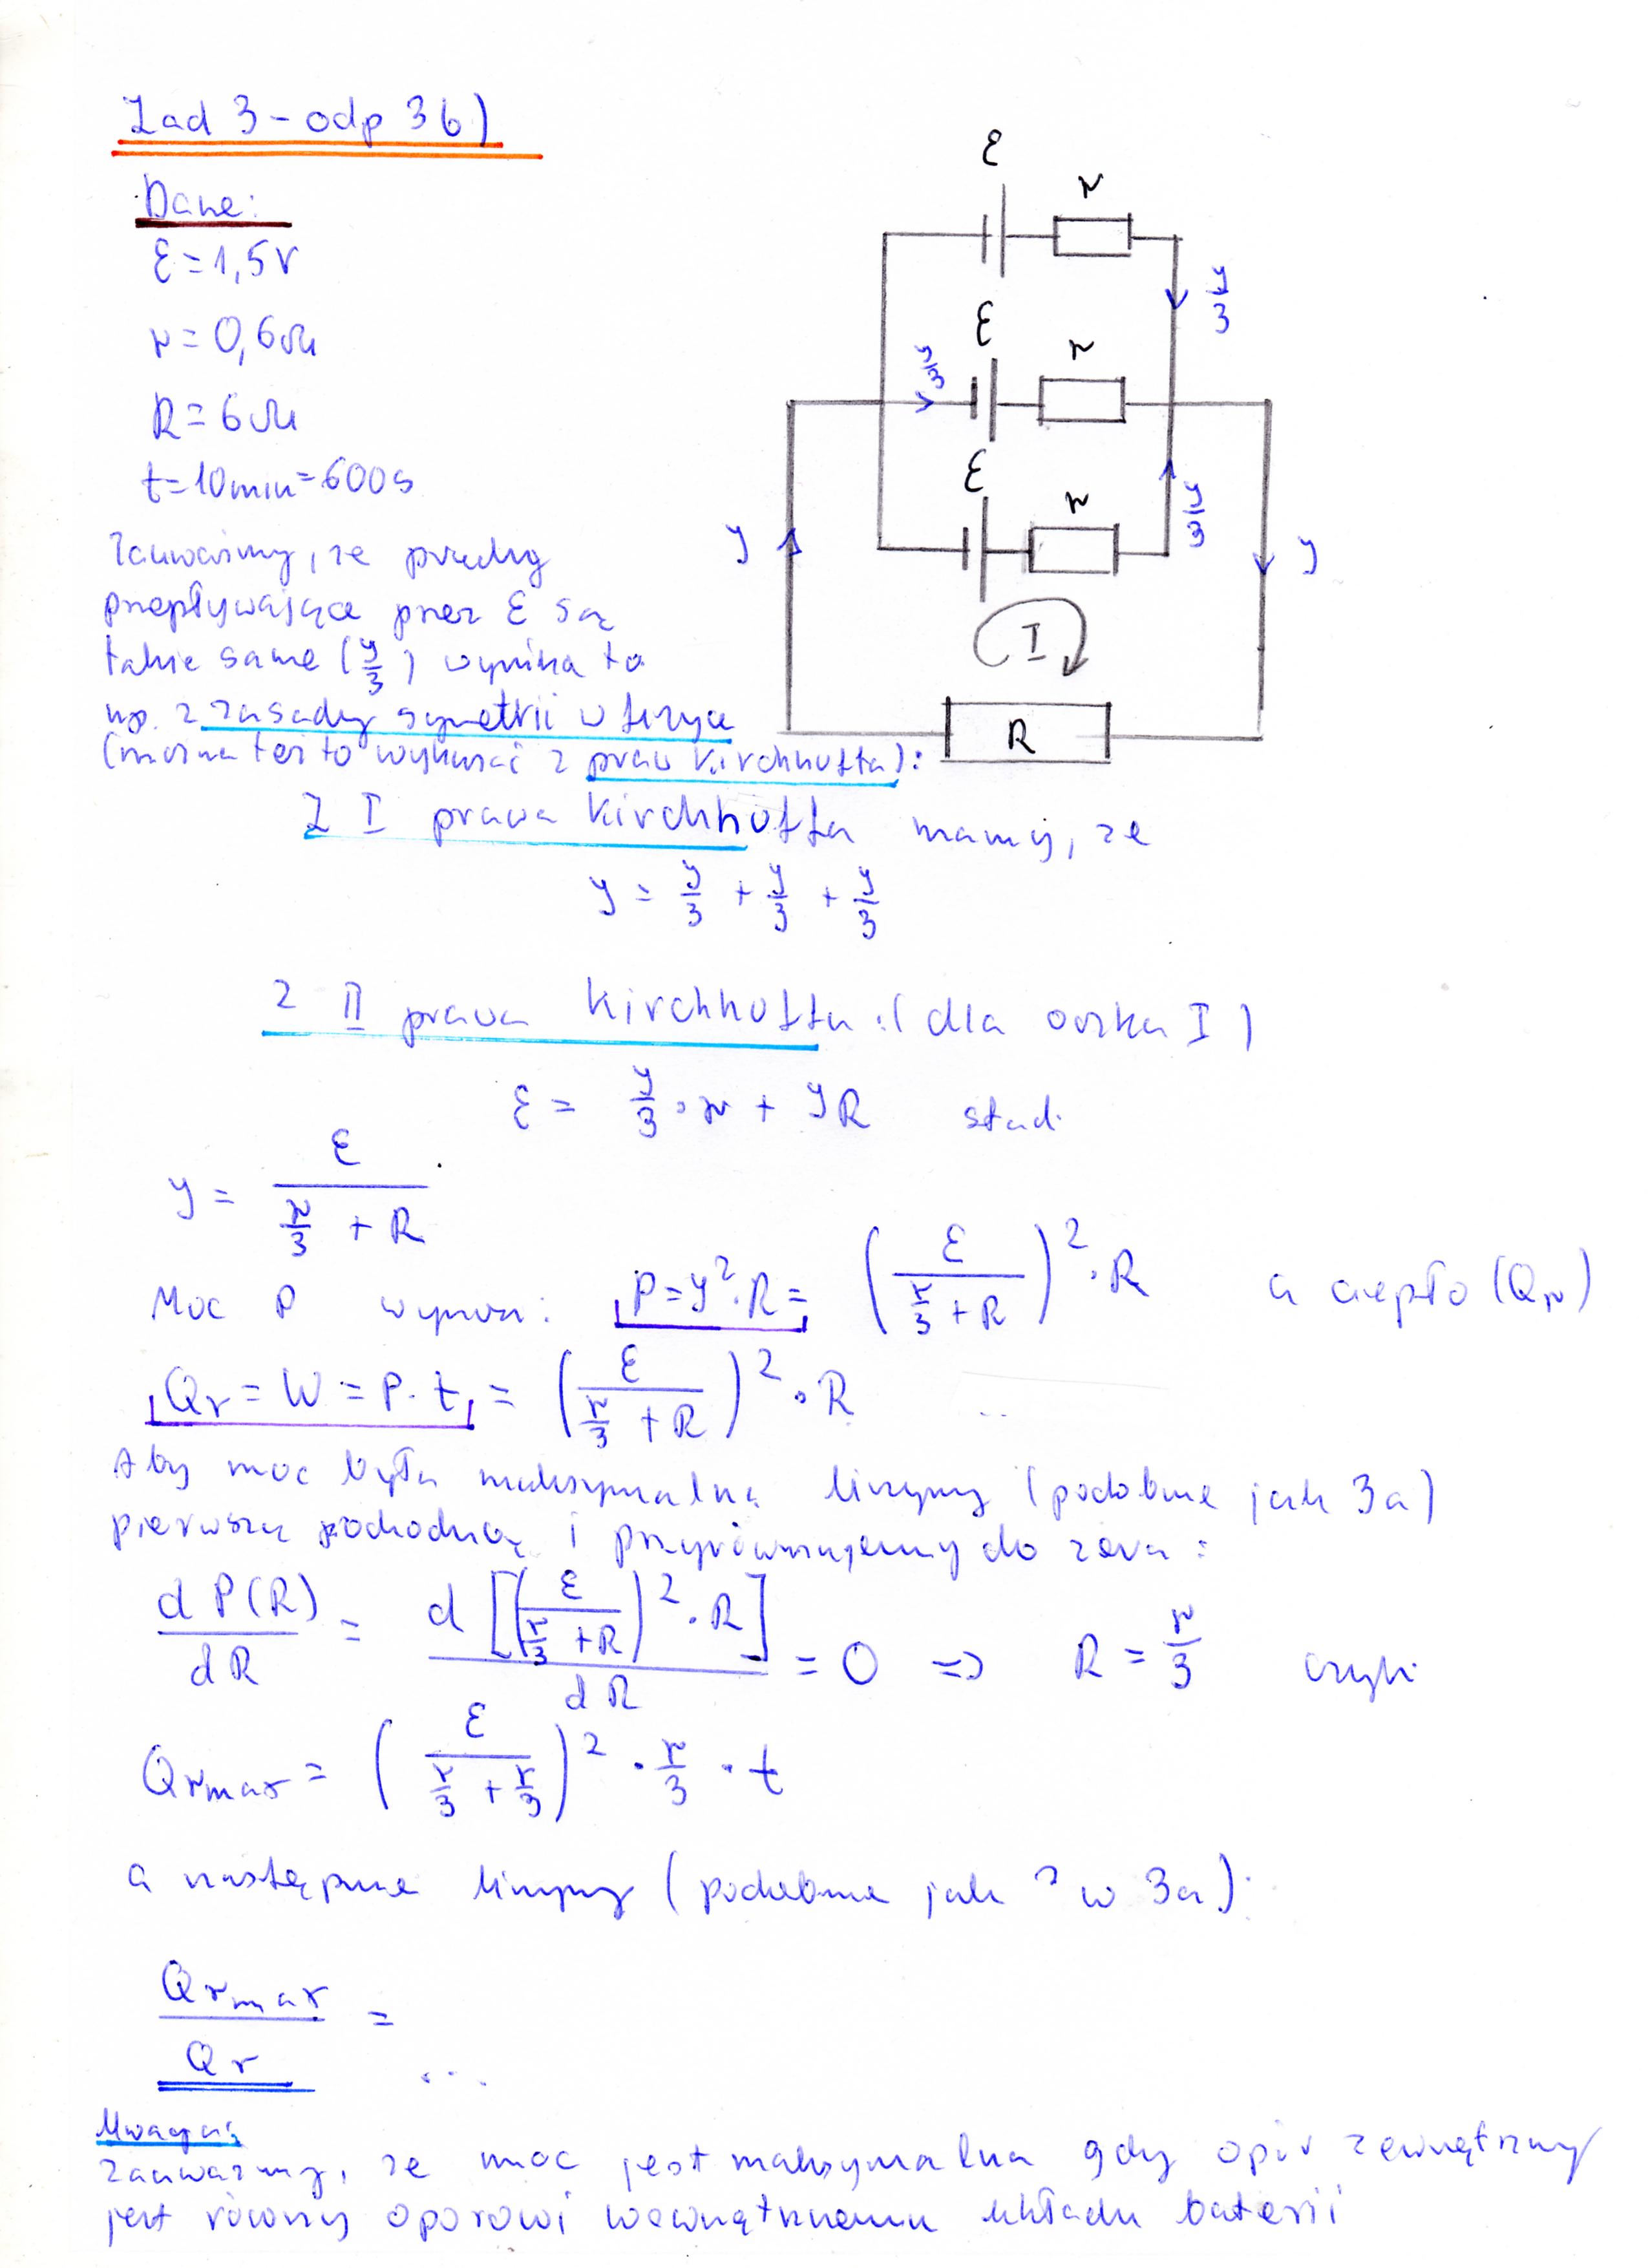 Zad 3 - odp 3b)
Dane:
ε = 1,5V
r = 0,6Ω
R = 6Ω
t = 10min = 600s
ε
r
y/3
ε
r
y/3
ε
r
y/3
y
y
I
R
Zauważmy, że prądy
przepływające przez ε są
takie same (y/3) wynika to
np. z zasady symetrii w fizyce
(można też to wykazać z praw Kirchhoffa):
Z I prawa Kirchhoffa mamy, że
y = y/3 + y/3 + y/3
Z II prawa Kirchhoffa: (dla oczka I)
ε = y/3 · r + yR stąd:
y = ε / (r/3 + R)
Moc P wynosi: P = y² · R = (ε / (r/3 + R))² · R a ciepło (Qr)
Qr = W = P · t = (ε / (r/3 + R))² · R
Aby moc była maksymalna liczymy (podobnie jak 3a)
pierwszą pochodną i przyrównujemy do zera:
dP(R)/dR = d[(ε / (r/3 + R))² · R]/dR = 0 => R = r/3 czyli
Qrmax = (ε / (r/3 + r/3))² · r/3 · t
a następnie liczymy (podobnie jak w 3a):
Qrmax/Qr = ...
Uwaga:
Zauważmy, że moc jest maksymalna gdy opór zewnętrzny
jest równy oporowi wewnętrznemu układu baterii